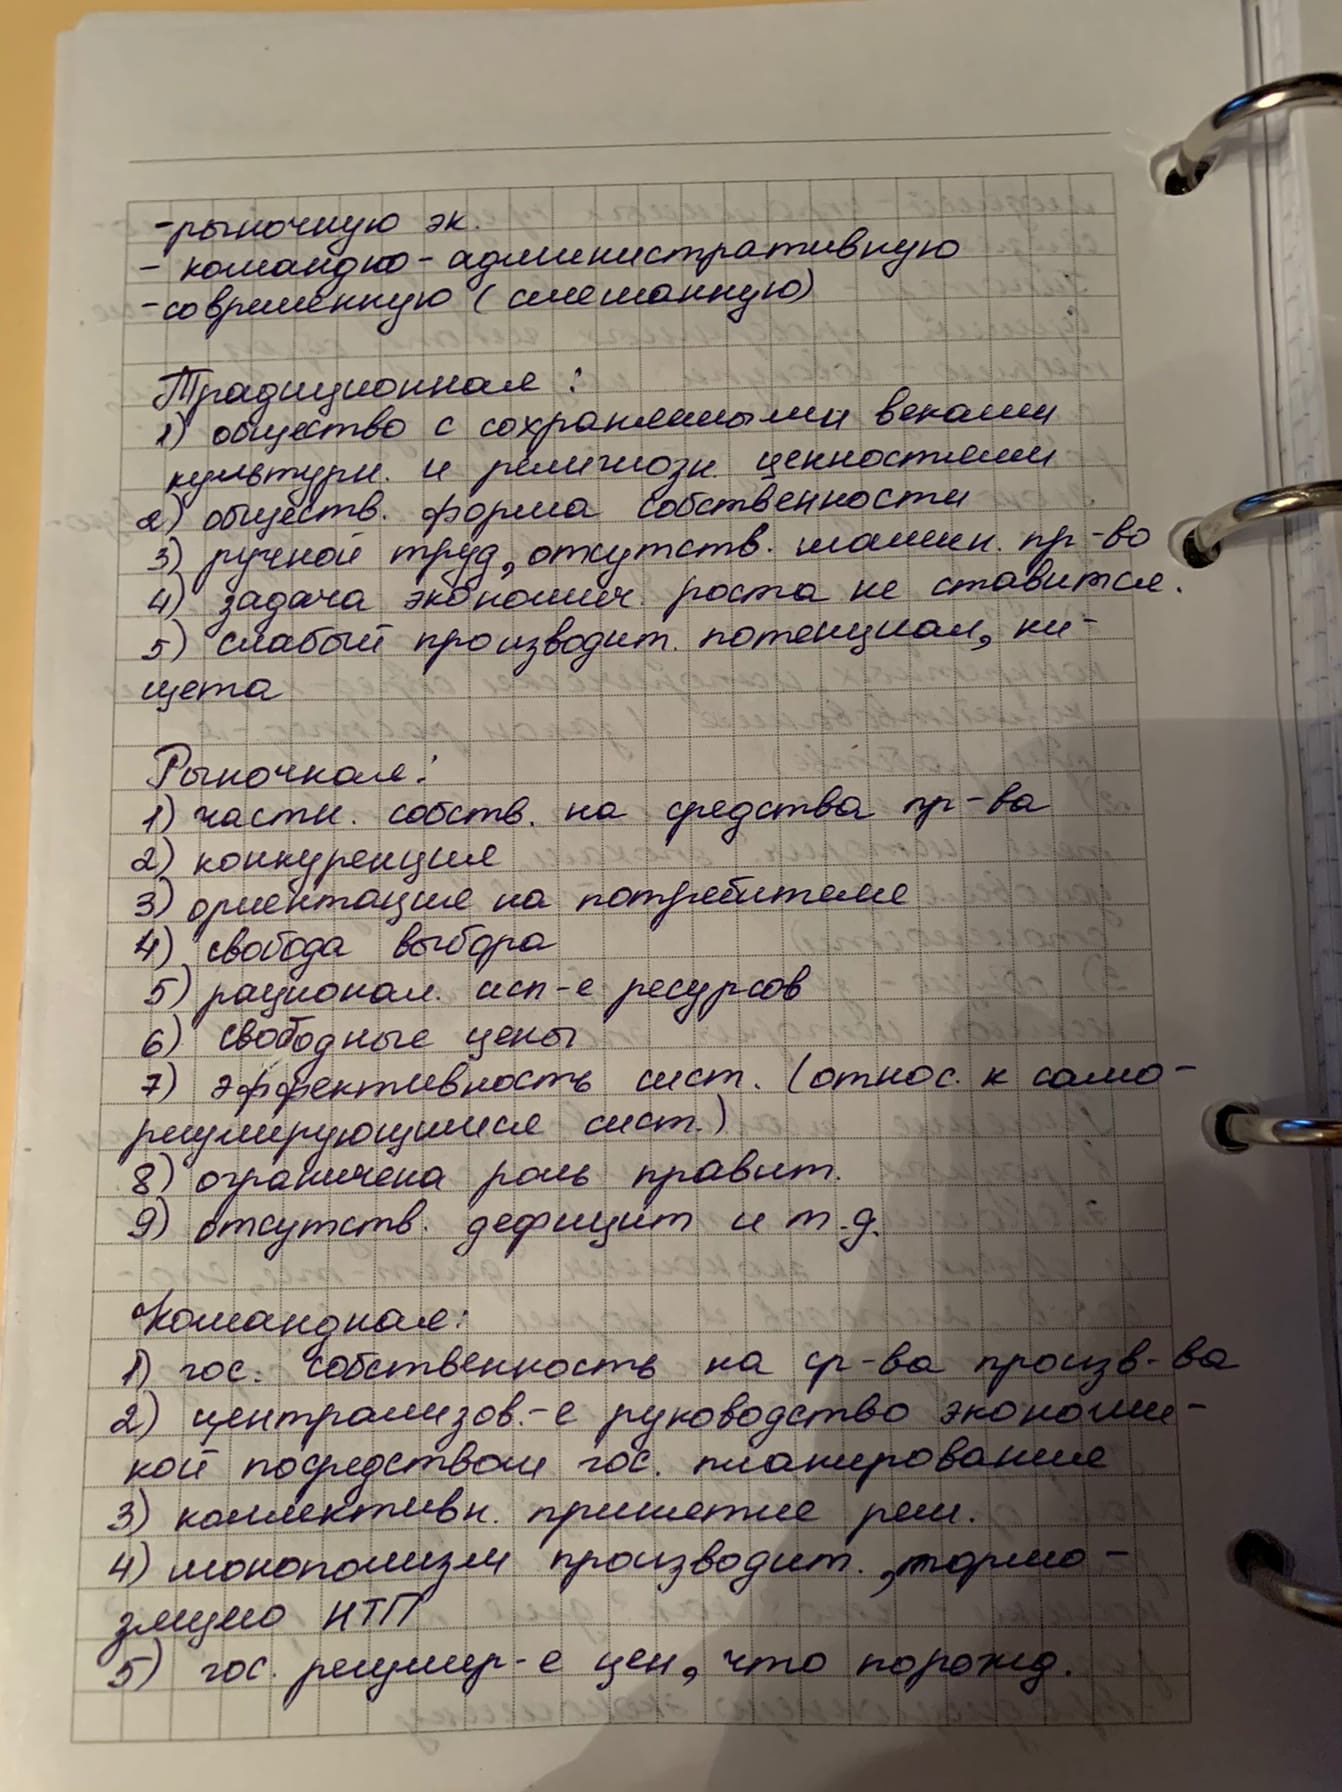 -рыночную эк.
- командно-административную
-современную (смешанную)
Традиционная:
1) общество с сохраненными веками
культурн. и религиозн. ценностями
2) обществ. форма собственности
3) ручной труд, отсутств. машин. пр-во
4) задача экономич. роста не ставится.
5) слабый производит. потенциал, ни-
щета
Рыночная:
1) частн. собств. на средства пр-ва
2) конкуренция
3) ориентация на потребителя
4) свобода выбора
5) рационал. исп-е ресурсов
6) свободные цены
7) эффективность сист. (относ. к само-
регулирующимся сист.)
8) ограничена роль правит.
9) отсутств. дефицит и т.д.
Командная:
1) гос. собственность на ср-ва произв-ва
2) централизов.-е руководство экономи-
кой посредством гос. планирование
3) коллективн. принятие реш.
4) монополизм производит., тормо-
зящию НТП
5) гос. регулир-е цен, что порожд.